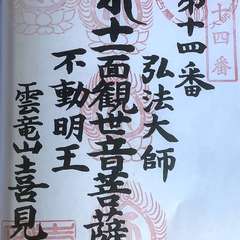 第十四番
十四番
弘法大師
十一面観世音菩薩
不動明王
雲竜山喜見